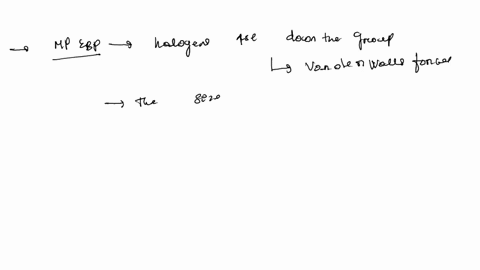 → MP & BP → halogens ↑se down the group
↳ Vander Walls forces
→ The size